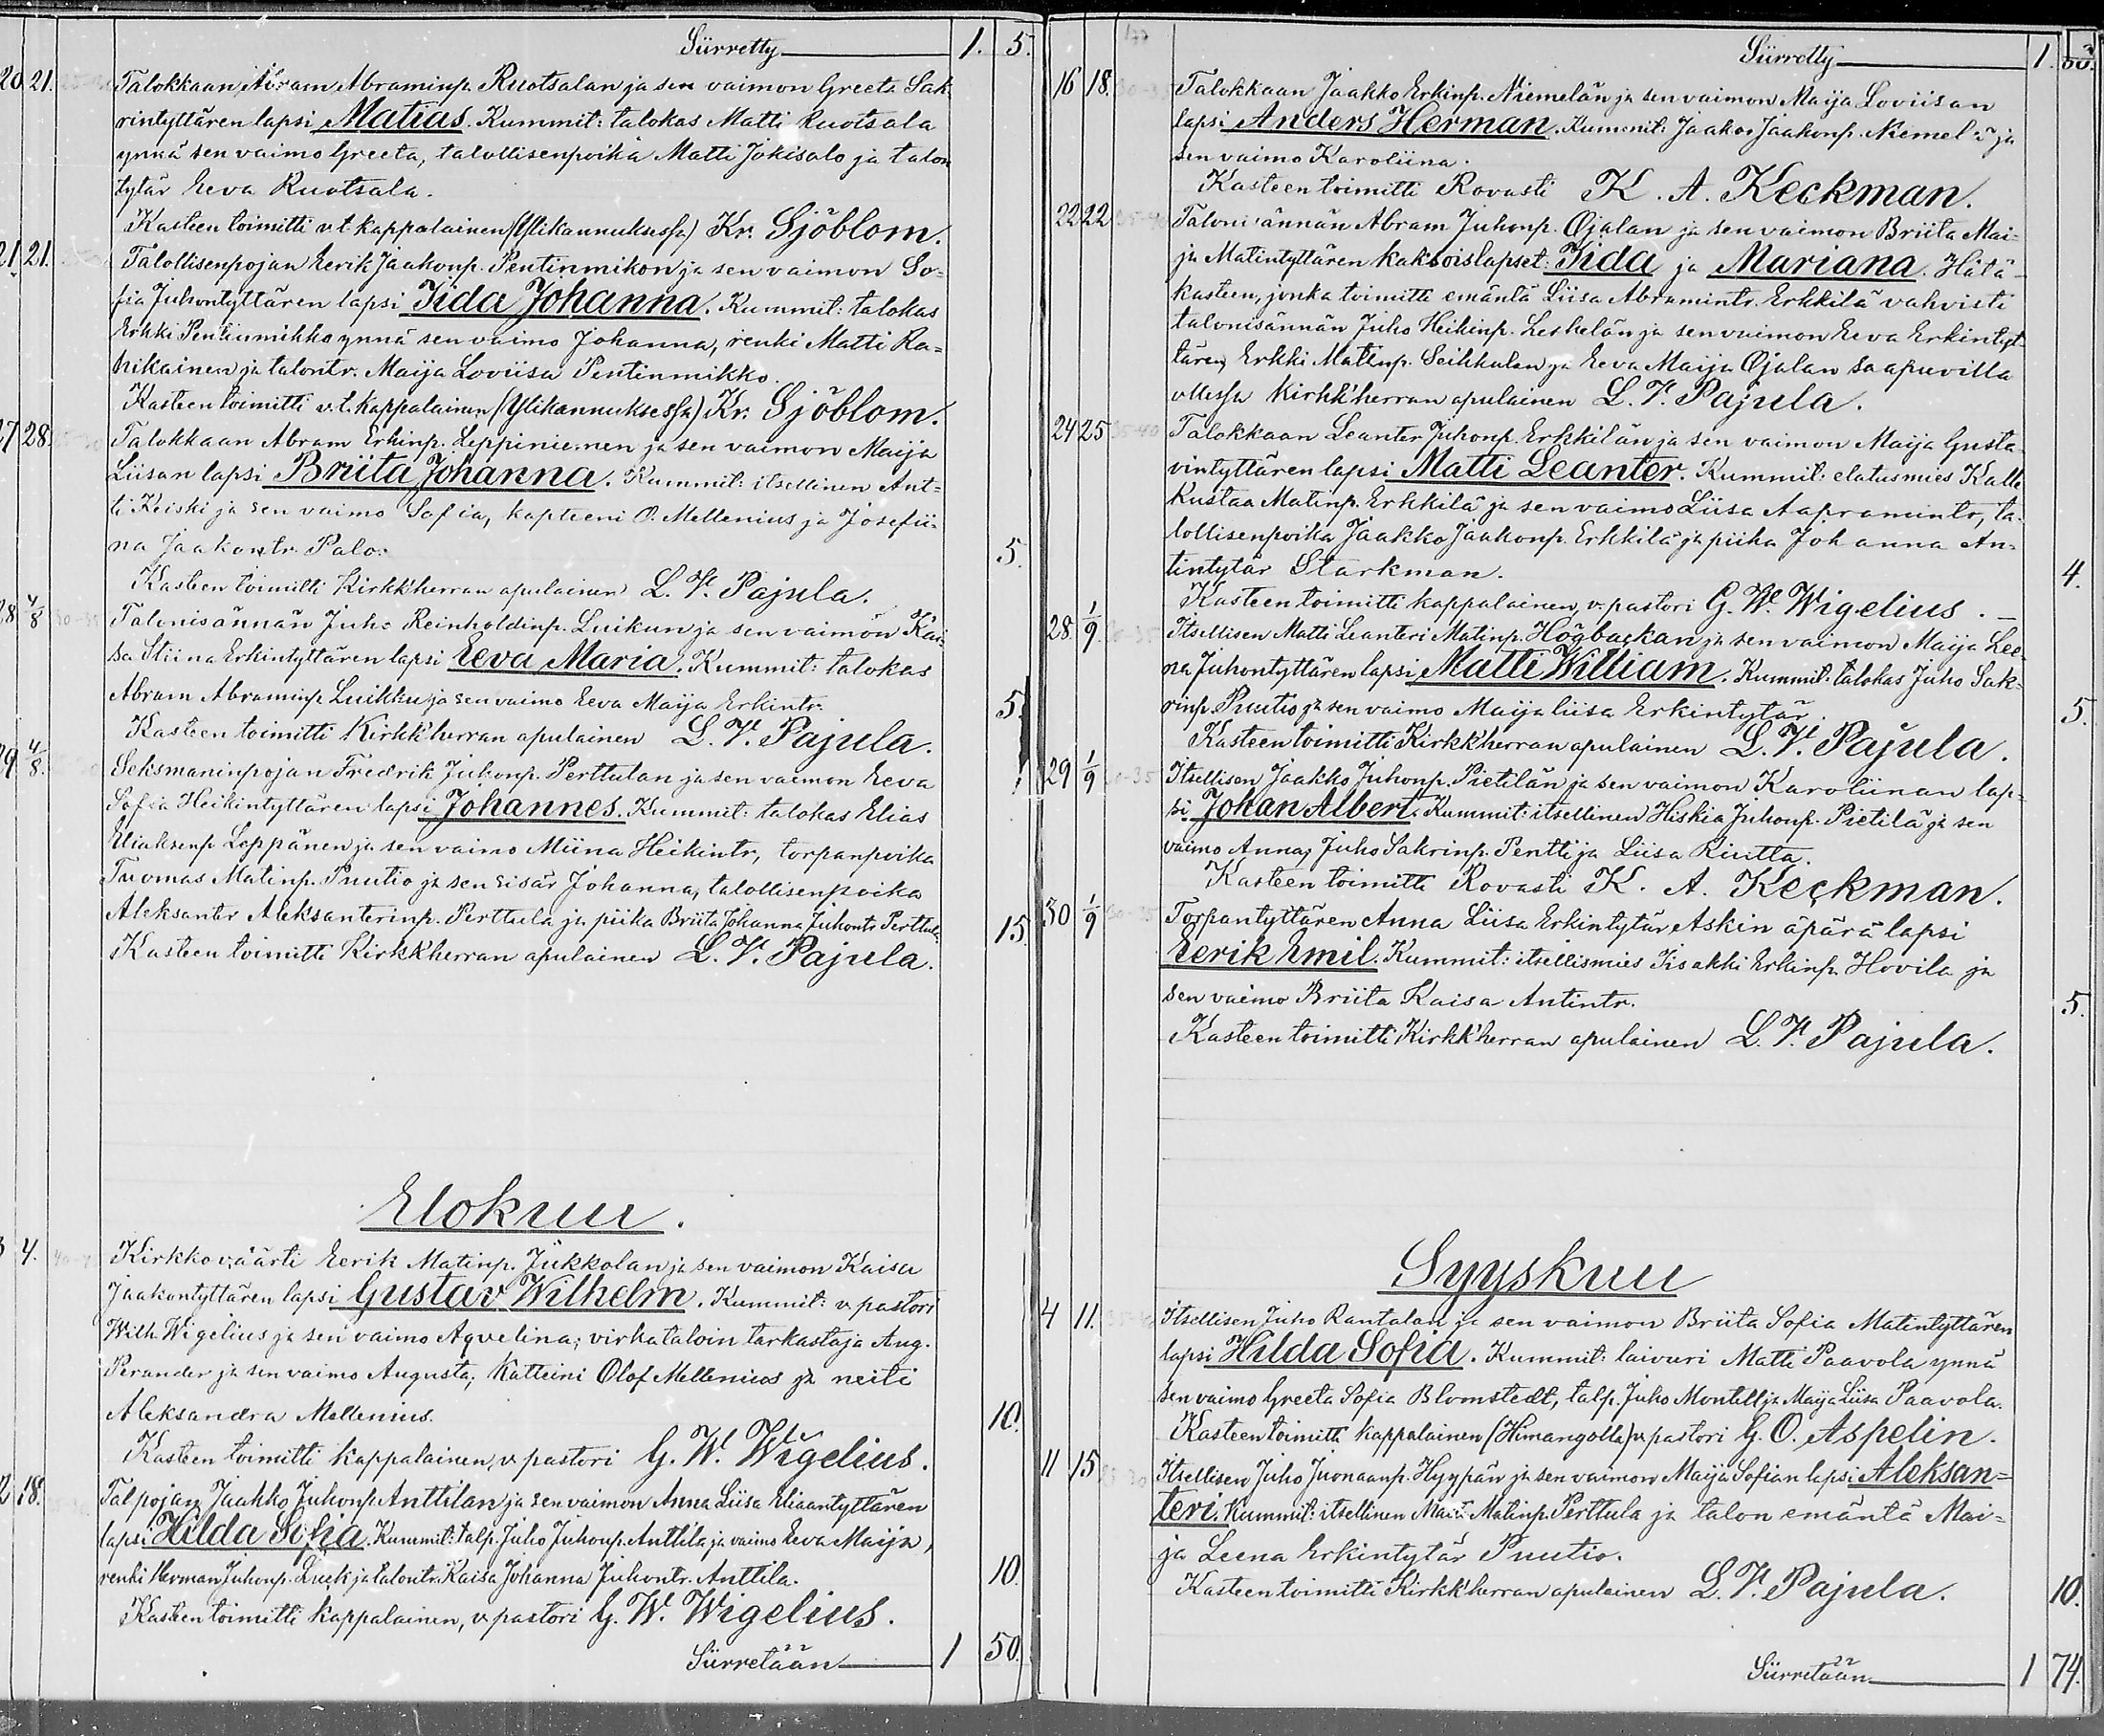 Siirretty 1. 5.
20 21. Talokkaan Abram Abraminp. Ruotsalan ja sen vaimon Greeta Sak-
rintyttären lapsi Matias. Kummit: talokas Matti Ruotsala
ynnä sen vaimo Greeta, talollisenpoika Matti Jokisalo ja talon
tytär Eeva Ruotsala.
Kasteen toimitti v.t. kappalainen (Ylikannuksessa) Kr. Sjöblom.
21 21. Talollisenpojan Eerik Jaakonp. Pentinmikon ja sen vaimon So-
fia Juhontyttären lapsi Iida Johanna. Kummit: talokas
Erkki Pentinmikko ynnä sen vaimo Johanna, renki Matti Ra=
nikainen ja talontr. Maija Loviisa Pentinmikko.
Kasteen toimitti v.t. kappalainen (Ylikannuksessa) Kr. Sjöblom.
27 28. Talokkaan Abram Erkinp. Leppiniemen ja sen vaimon Maija
Liisan lapsi Briita Johanna. Kummit: itsellinen Ant=
ti Keiski ja sen vaimo Sofia, kapteeni O. Mellenius ja Josefii-
na Jaakontr. Palo. 5.
Kasteen toimitti Kirkk'herran apulainen L. V. Pajula.
28 4/8 Talonisännän Juho Reinholdinp. Luikun ja sen vaimon Kai-
sa Stiina Erkintyttären lapsi Eeva Maria. Kummit: talokas
Abram Abraminp. Luikku ja sen vaimo Eeva Maija Erkintr. 5.
Kasteen toimitti Kirkk'herran apulainen L. V. Pajula.
29 4/8. Seksmaninpojan Fredrik Juhonp. Perttulan ja sen vaimon Eeva
Sofia Heikintyttären lapsi Johannes. Kummit: talokas Elias
Eliaksenp. Leppänen ja sen vaimo Miina Heikintr, torpanpoika
Tuomas Matinp. Puutio ja sen sisar Johanna, talollisenpoika
Aleksanter Aleksanterinp. Perttula ja piika Briita Johanna Juhontr Perttula 15.
Kasteen toimitti Kirkkherran apulainen L. V. Pajula.
Elokuu.
3 4. Kirkkoväärti Eerik Matinp. Jukkolan ja sen vaimon Kaisa
Jaakontyttären lapsi Gustav Wilhelm. Kummit: v. pastori
Wilh. Wigelius ja sen vaimo Aqvelina; virkataloin tarkastaja Aug.
Perander ja sen vaimo Augusta; Katteini Olof Mellenius ja neiti
Aleksandra Mellenius. 10.
Kasteen toimitti kappalainen, v. pastori G. W. Wigelius.
2 18. Talpojan Jaakko Juhonp. Anttilan ja sen vaimon Anna Liisa Eliaantyttären
lapsi Hilda Sofia. Kummit: talp. Juho Juhonp. Anttila ja vaimo Eeva Maija,
renki Herman Juhonp. Luck ja talontr. Kaisa Johanna Juhontr. Anttila. 10.
Kasteen toimitti kappalainen, v. pastori G. W. Wigelius.
Siirretään 1 50.
Siirretty 1.
16 18. Talokkaan Jaakko Erkinp. Niemelän ja sen vaimon Maija Loviisan
lapsi Anders Herman. Kummit: Jaakos Jaakonp. Niemelä ja
sen vaimo Karoliina.
Kasteen toimitti Rovasti K. A. Keckman.
22 22 Talonisännän Abram Juhonp. Ojalan ja sen vaimon Briita Mai=
ja Matintyttären kaksoislapset: Iida ja Mariana. Hätä-
kasteen, jonka toimitti emäntä Liisa Abramintr. Erkkilä vahvisti
talonisännän Juho Heikinp. Leskelän ja sen vaimon Eeva Erkintyt
tären, Erkki Matinp. Seikkulan ja Eeva Maija Ojalan saapuvilla
ollessa Kirkk'herran apulainen L. V. Pajula.
24 25 Talokkaan Leanter Juhonp. Erkkilän ja sen vaimon Maija Gusta-
vintyttären lapsi Matti Leanter. Kummit: elatusmies Kalle
Kustaa Matinp. Erkkilä ja sen vaimo Liisa Aapramintr, ta-
lollisenpoika Jaakko Jaakonp. Erkkilä ja piika Johanna An-
tintytär Starkman. 4.
Kasteen toimitti kappalainen, v. pastori G. W. Wigelius.
28. 1/9. Itsellisen Matti Leanteri Matinp. Högbackan ja sen vaimon Maija Lee-
na Juhontyttären lapsi Matti William. Kummit: talokas Juho Sak=
rinp. Puutio ja sen vaimo Maijaliisa Erkintytär. 5.
Kasteen toimitti Kirkkherran apulainen L. V. Pajula.
29 1/9 Itsellisen Jaakko Juhonp. Pietilän ja sen vaimon Karoliinan lap-
si Johan Albert. Kummit: itsellinen Hiskia Juhonp. Pietilä ja sen
vaimo Anna; Juho Sakrinp. Pentti ja Liisa Riutta.
Kasteen toimitti Rovasti K. A. Keckman.
30 1/9 Torpantyttären Anna Liisa Erkintytär Askin äpärä lapsi
Eerik Emil. Kummit: itsellismies Iisakki Erkinp. Hovila ja
sen vaimo Briita Kaisa Antintr. 5.
Kasteen toimitti Kirkk'herran apulainen L. V. Pajula.
Syyskuu
4 11. Itsellisen Juho Rantalan ja sen vaimon Briita Sofia Matintyttären
lapsi Hilda Sofia. Kummit: laivuri Matti Paavola ynnä
sen vaimo Greeta Sofia Blomstedt, talp. Juho Montell ja Maija Liisa Paavola.
Kasteen toimitti kappalainen (Himangolla) v. pastori G. O. Aspelin.
11 15 Itsellisen Juho Juonaanp. Hyypän ja sen vaimon Maija Sofian lapsi Aleksan=
teri. Kummit: itsellinen Matti Matinp. Perttula ja talon emäntä Mai=
ja Leena Erkintytär Puutio.
Kasteen toimitti Kirkk'herran apulainen L. V. Pajula. 10.
Siirretään 1 74.